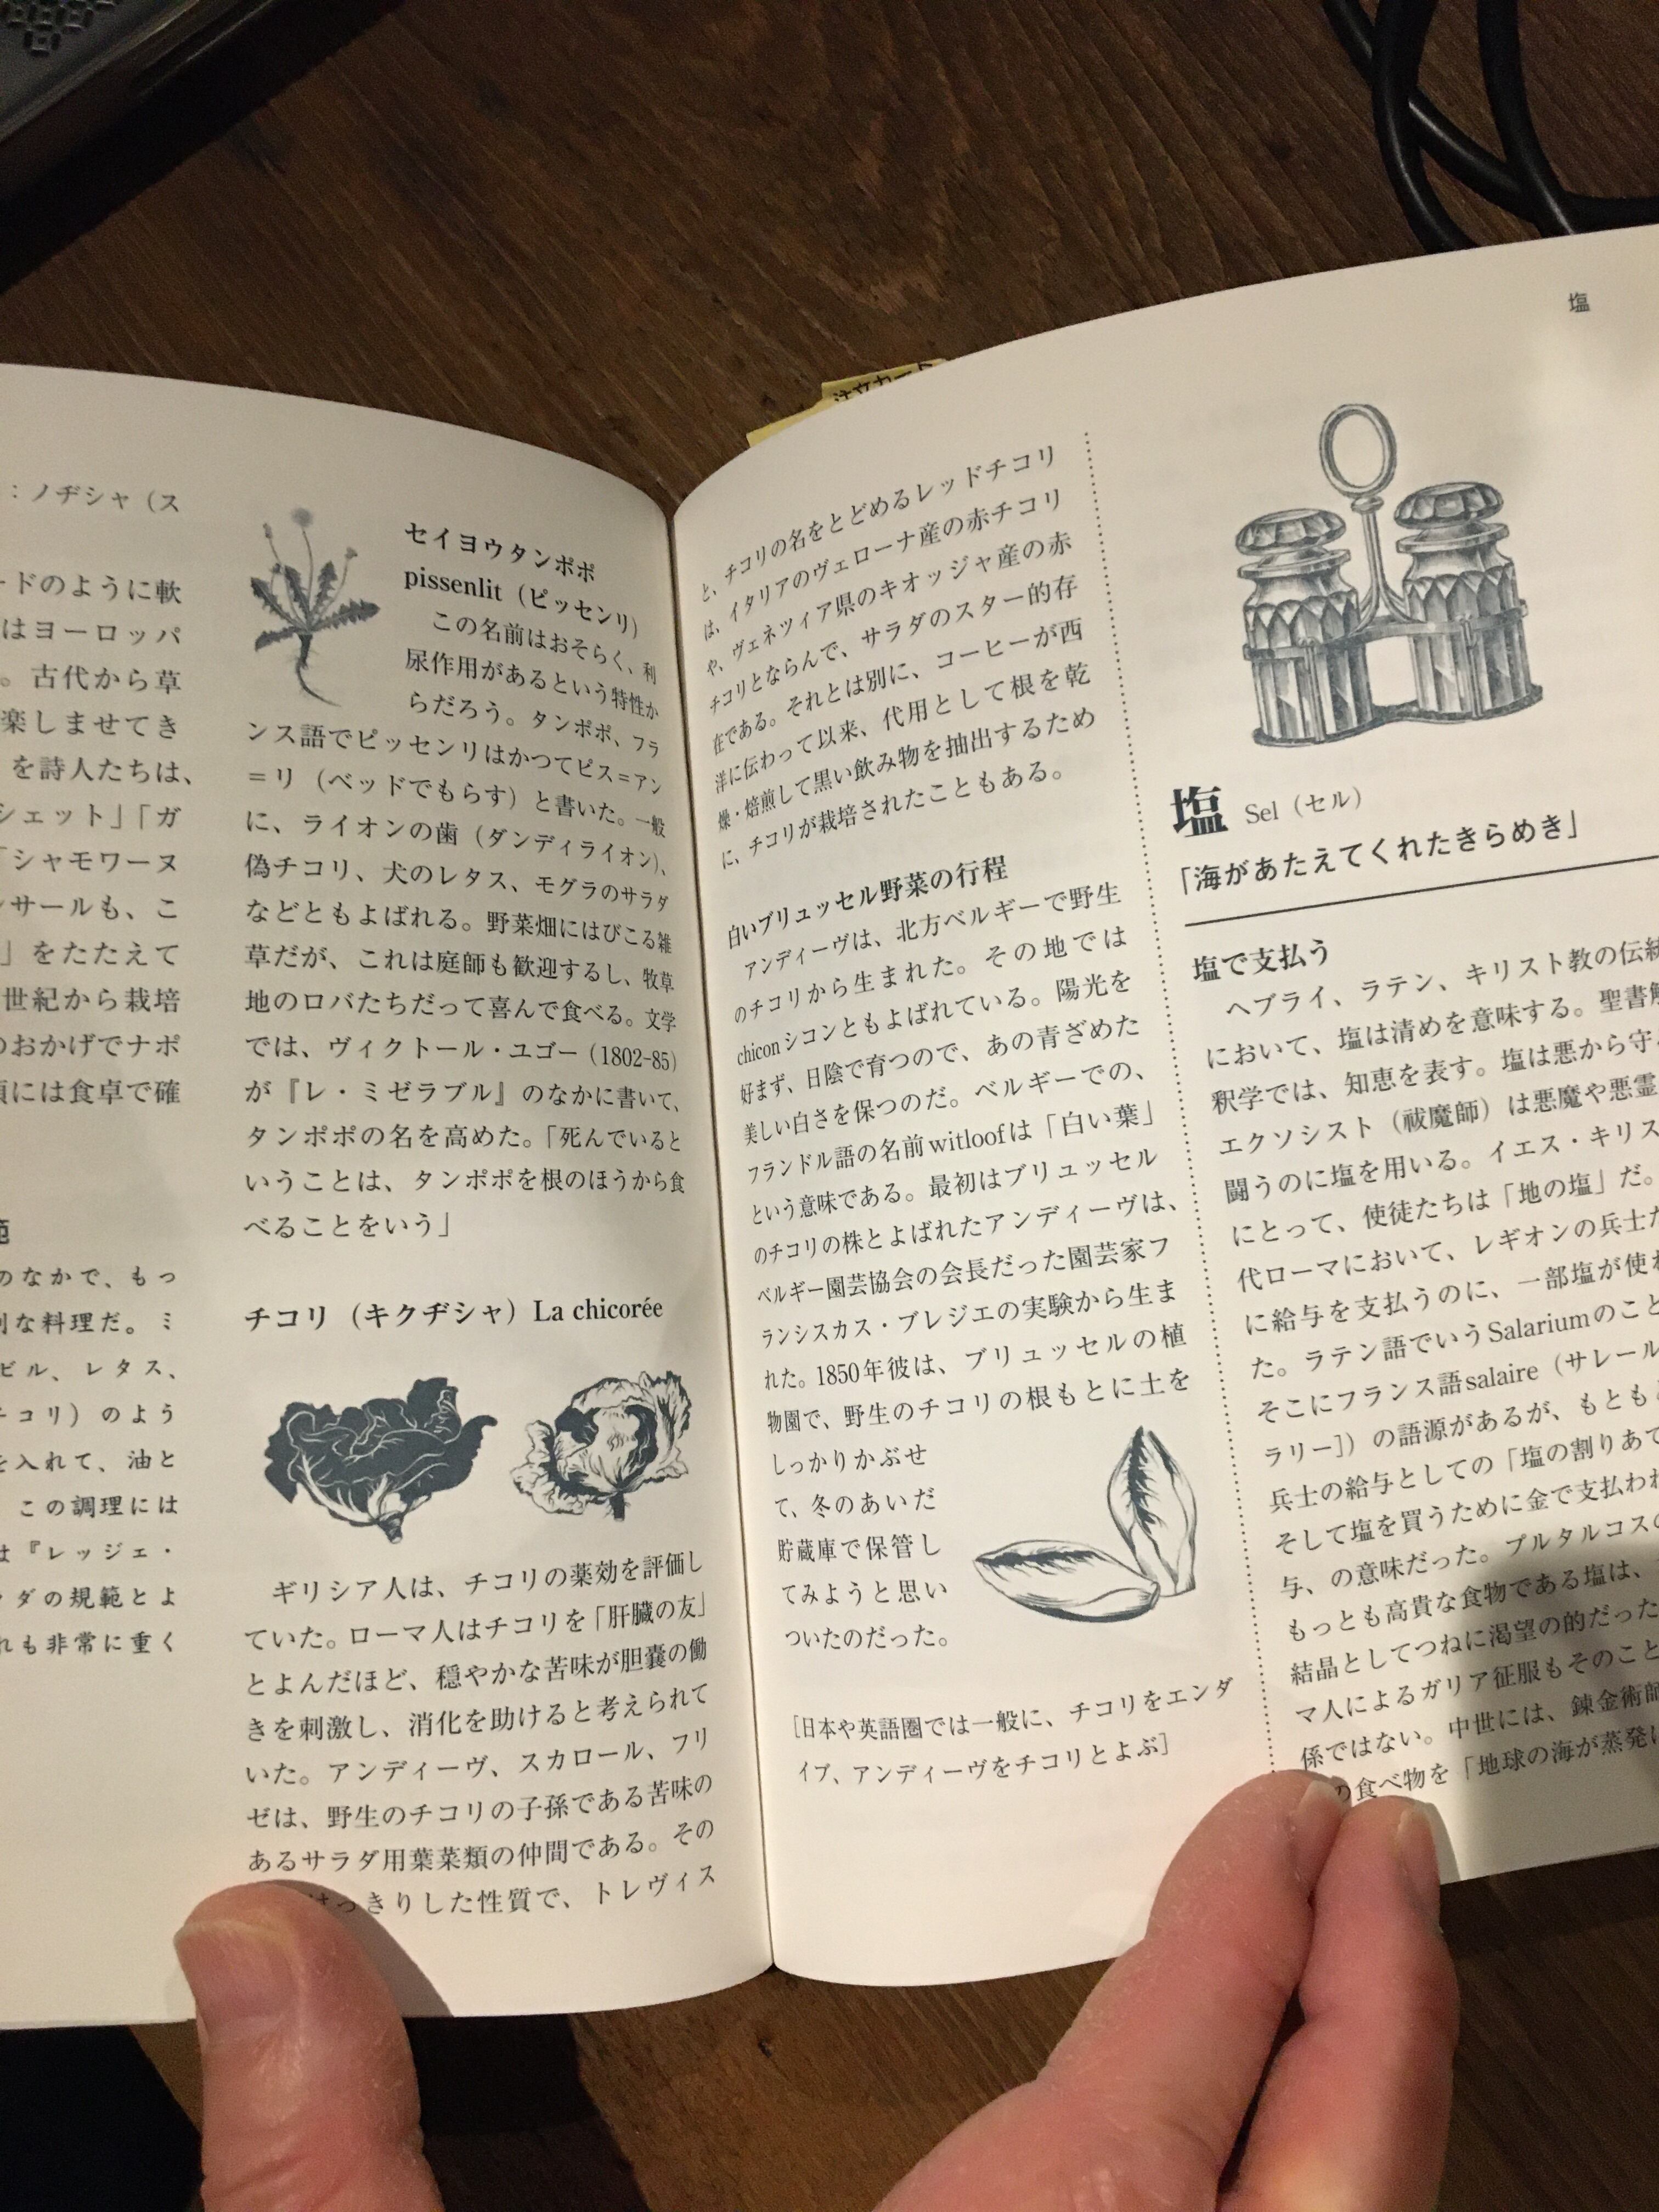 ：ノヂシャ（ス
ードのように軟
はヨーロッパ
。古代から草
楽しませてき
を詩人たちは、
シェット」「ガ
「シャモワーヌ
ンサールも、こ
」をたたえて
世紀から栽培
のおかげでナポ
頃には食卓で確
範
のなかで、もっ
別な料理だ。ミ
ビル、レタス、
チコリ）のよう
を入れて、油と
この調理には
は『レッジェ・
ダの規範とよ
れも非常に重く
セイヨウタンポポ
pissenlit（ピッセンリ）
この名前はおそらく、利
尿作用があるという特性か
らだろう。タンポポ、フラ
ンス語でピッセンリはかつてピス＝アン
＝リ（ベッドでもらす）と書いた。一般
に、ライオンの歯（ダンディライオン）、
偽チコリ、犬のレタス、モグラのサラダ
などともよばれる。野菜畑にはびこる雑
草だが、これは庭師も歓迎するし、牧草
地のロバたちだって喜んで食べる。文学
では、ヴィクトール・ユゴー（1802-85）
が『レ・ミゼラブル』のなかに書いて、
タンポポの名を高めた。「死んでいると
いうことは、タンポポを根のほうから食
べることをいう」
チコリ（キクヂシャ）La chicorée
ギリシア人は、チコリの薬効を評価し
ていた。ローマ人はチコリを「肝臓の友」
とよんだほど、穏やかな苦味が胆嚢の働
きを刺激し、消化を助けると考えられて
いた。アンディーヴ、スカロール、フリ
ゼは、野生のチコリの子孫である苦味の
あるサラダ用葉菜類の仲間である。その
はっきりした性質で、トレヴィス
注文カード
と、チコリの名をとどめるレッドチコリ
は、イタリアのヴェローナ産の赤チコリ
や、ヴェネツィア県のキオッジャ産の赤
チコリとならんで、サラダのスター的存
在である。それとは別に、コーヒーが西
洋に伝わって以来、代用として根を乾
燥・焙煎して黒い飲み物を抽出するため
に、チコリが栽培されたこともある。
白いブリュッセル野菜の行程
アンディーヴは、北方ベルギーで野生
のチコリから生まれた。その地では
chiconシコンともよばれている。陽光を
好まず、日陰で育つので、あの青ざめた
美しい白さを保つのだ。ベルギーでの、
フランドル語の名前witloofは「白い葉」
という意味である。最初はブリュッセル
のチコリの株とよばれたアンディーヴは、
ベルギー園芸協会の会長だった園芸家フ
ランシスカス・ブレジエの実験から生ま
れた。1850年彼は、ブリュッセルの植
物園で、野生のチコリの根もとに土を
しっかりかぶせ
て、冬のあいだ
貯蔵庫で保管し
てみようと思い
ついたのだった。
［日本や英語圏では一般に、チコリをエンダ
イブ、アンディーヴをチコリとよぶ］
塩
塩 Sel（セル）
「海があたえてくれたきらめき」
塩で支払う
ヘブライ、ラテン、キリスト教の伝統
において、塩は清めを意味する。聖書解
釈学では、知恵を表す。塩は悪から守
エクソシスト（祓魔師）は悪魔や悪霊
闘うのに塩を用いる。イエス・キリス
にとって、使徒たちは「地の塩」だ。
代ローマにおいて、レギオンの兵士た
に給与を支払うのに、一部塩が使わ
た。ラテン語でいうSalariumのこと
そこにフランス語salaire（サレール
ラリー］）の語源があるが、もともと
兵士の給与としての「塩の割りあて
そして塩を買うために金で支払われ
与、の意味だった。プルタルコスの
もっとも高貴な食物である塩は、
結晶としてつねに渇望の的だった
マ人によるガリア征服もそのこと
係ではない。中世には、錬金術師
の食べ物を「地球の海が蒸発